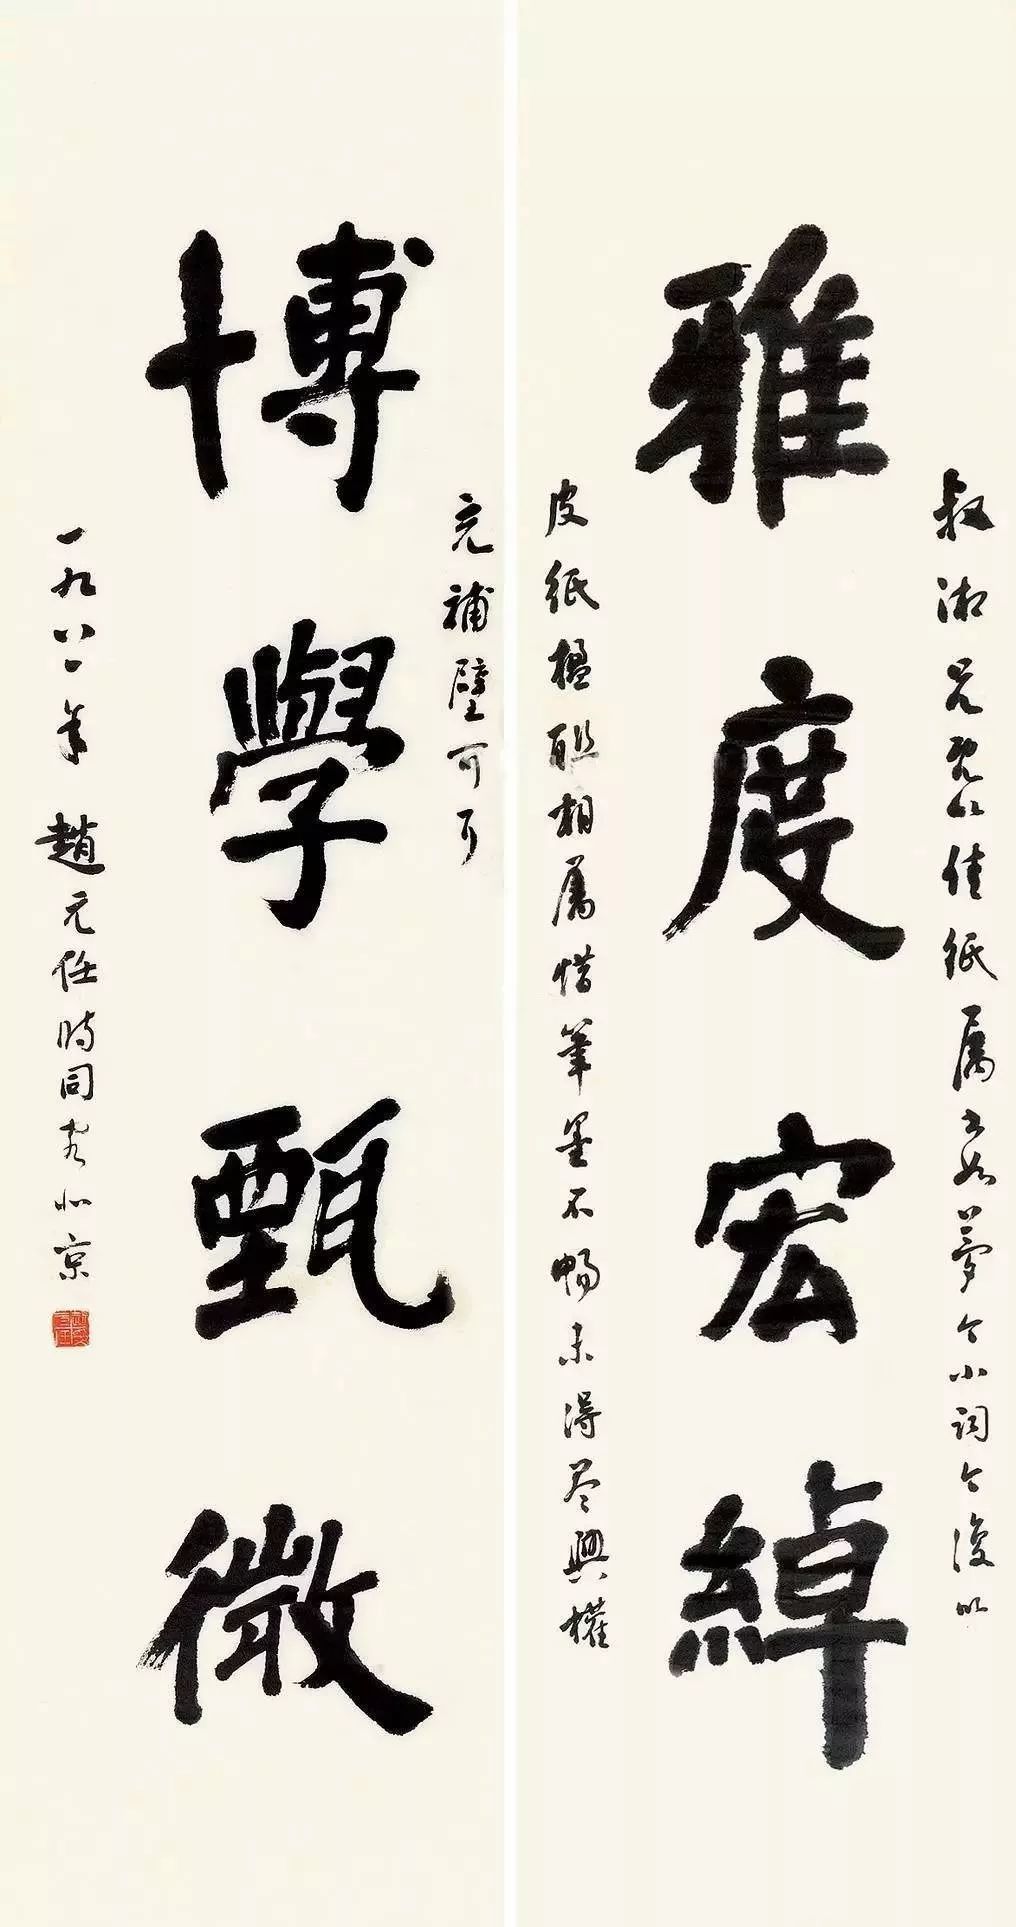 叔湘兄既以佳紙属書如夢令小詞今復以
雅度宏綽
皮紙楹聯相属惜筆墨不暢未得尽興權
充補壁可耳
博學甄微
一九八一年 趙元任時同客北京